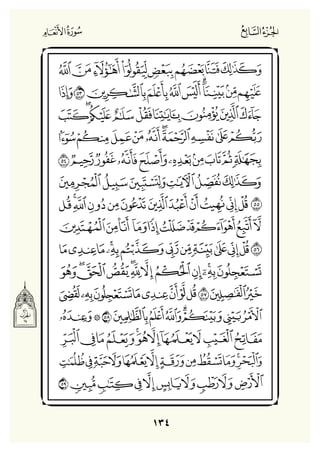 الجزء السابع سورة الأنعام
وَكَذَٰلِكَ فَتَنَّا بَعْضَهُم بِبَعْضٍ لِّيَقُولُوٓا۟ أَهَـٰٓؤُلَآءِ مَنَّ ٱللَّهُ
عَلَيْهِم مِّنۢ بَيْنِنَآ ۗ أَلَيْسَ ٱللَّهُ بِأَعْلَمَ بِٱلشَّـٰكِرِينَ ٥٣ وَإِذَا
جَآءَكَ ٱلَّذِينَ يُؤْمِنُونَ بِـَٔايَـٰتِنَا فَقُلْ سَلَـٰمٌ عَلَيْكُمْ ۖ كَتَبَ
رَبُّكُمْ عَلَىٰ نَفْسِهِ ٱلرَّحْمَةَ ۖ أَنَّهُۥ مَنْ عَمِلَ مِنكُمْ سُوٓءًۢا
بِجَهَـٰلَةٍ ثُمَّ تَابَ مِنۢ بَعْدِهِۦ وَأَصْلَحَ فَأَنَّهُۥ غَفُورٌ رَّحِيمٌ ٥٤
وَكَذَٰلِكَ نُفَصِّلُ ٱلْـَٔايَـٰتِ وَلِتَسْتَبِينَ سَبِيلُ ٱلْمُجْرِمِينَ
٥٥ قُلْ إِنِّى نُهِيتُ أَنْ أَعْبُدَ ٱلَّذِينَ تَدْعُونَ مِن دُونِ ٱللَّهِ ۚ قُل
لَّآ أَتَّبِعُ أَهْوَآءَكُمْ ۙ قَدْ ضَلَلْتُ إِذًا وَمَآ أَنَا۠ مِنَ ٱلْمُهْتَدِينَ
٥٦ قُلْ إِنِّى عَلَىٰ بَيِّنَةٍ مِّن رَّبِّى وَكَذَّبْتُم بِهِۦ ۚ مَا عِندِى مَا
تَسْتَعْجِلُونَ بِهِۦٓ ۚ إِنِ ٱلْحُكْمُ إِلَّا لِلَّهِ ۖ يَقُصُّ ٱلْحَقَّ ۖ وَهُوَ
خَيْرُ ٱلْفَـٰصِلِينَ ٥٧ قُل لَّوْ أَنَّ عِندِى مَا تَسْتَعْجِلُونَ بِهِۦ لَقُضِىَ
ٱلْأَمْرُ بَيْنِى وَبَيْنَكُمْ ۗ وَٱللَّهُ أَعْلَمُ بِٱلظَّـٰلِمِينَ ٥٨ ۞ وَعِندَهُۥ
مَفَاتِحُ ٱلْغَيْبِ لَا يَعْلَمُهَآ إِلَّا هُوَ ۚ وَيَعْلَمُ مَا فِى ٱلْبَرِّ
وَٱلْبَحْرِ ۚ وَمَا تَسْقُطُ مِن وَرَقَةٍ إِلَّا يَعْلَمُهَا وَلَا حَبَّةٍ فِى ظُلُمَـٰتِ
ٱلْأَرْضِ وَلَا رَطْبٍ وَلَا يَابِسٍ إِلَّا فِى كِتَـٰبٍ مُّبِينٍ ٥٩
١٣٤